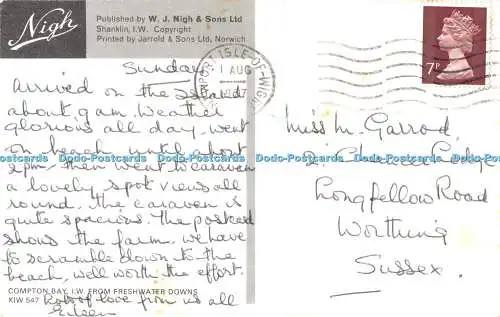 Nigh
Published by W. J. Nigh & Sons Ltd
Shanklin, I.W. Copyright
Printed by Jarrold & Sons Ltd, Norwich
NEWPORT ISLE-OF-WIGHT
1 AUG
7P
Sunday
Arrived on the Island
about 9am. Weather
glorious all day. went
on beach until about
2pm. then went to caravan
a lovely spot views all
round. the caravan is
quite spacious. the postcard
shows the farm. we have
to scramble down to the
beach, well worth the effort.
COMPTON BAY, I.W. FROM FRESHWATER DOWNS
KIW 547
Lots of love from us all
Eileen
Miss M. Garrod,
2, Lodge
Longfellow Road
Worthing
Sussex.
Dodo-Postcards Dodo-Postcards Dodo-Postcards Dodo-Postcards Dodo-Postcards Dodo-Postcards